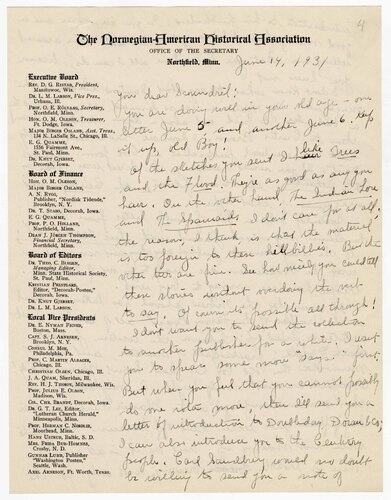 4
The Norwegian-American Historical Association
OFFICE OF THE SECRETARY
Northfield, Minn.
June 14, 1931
Executive Board
REV. D. G. RISTAD, President,
Manitowoc, Wis.
DR. L. M. LARSON, Vice Pres.,
Urbana, Ill.
PROF. O. E. ROLVAAG, Secretary,
Northfield, Minn.
HON. O. M. OLESON, Treasurer,
Ft. Dodge, Iowa.
MAJOR BIRGER OSLAND, Asst. Treas.
134 N. LaSalle St., Chicago, Ill.
E. G. QUAMME,
1526 Fairmont Ave.,
St. Paul, Minn.
DR. KNUT GJERSET,
Decorah, Iowa.
Board of Finance
HON. O. M. OLESON,
MAJOR BIRGER OSLAND,
A. N. RYGG,
Publisher, "Nordisk Tidende,"
Brooklyn, N. Y.
DR. T. STABO, Decorah, Iowa.
E. G. QUAMME,
PROF. P. O. HOLLAND,
Northfield, Minn.
DEAN J. JORGEN THOMPSON,
Financial Secretary,
Northfield, Minn.
Board of Editors
DR. THEO. C. BLEGEN,
Managing Editor,
Minn. State Historical Society,
St. Paul, Minn.
KRISTIAN PRESTGARD,
Editor, "Decorah-Posten,"
Decorah, Iowa.
DR. KNUT GJERSET,
DR. L. M. LARSON.
Local Vice Presidents
DR. E. NYMAN FIGVED,
Boston, Mass.
CAPT. S. J. ARNESEN,
Brooklyn, N. Y.
CONSUL M. MOE,
Philadelphia, Pa.
PROF. C. MARTIN ALSAGER,
Chicago, Ill.
CHRISTIAN OLSEN, Chicago, Ill.
J. A. QUAM, Sheridan, Ill.
REV. H. J. THORPE, Milwaukee, Wis.
PROF. JULIUS E. OLSON,
Madison, Wis.
COL. CHR. BRANDT, Decorah, Iowa.
DR. G. T. LEE, Editor,
"Lutheran Church Herald,"
Minneapolis, Minn.
PROF. HERMAN C. NORDLIE,
Moorhead, Minn.
HANS USTRUD, Baltic, S. D.
MRS. FRIDA BUE-HOMNES,
Crosby, N. D.
GUNNAR LUND, Publisher
"Washington Posten,"
Seattle, Wash.
AXEL ARNESON, Ft. Worth, Texas.
You dear Scoundrel:
You are doing well in your old age - one
letter June 5 and another June 6. Keep
it up, old Boy!
Of the sketches you sent I like Trees
and the Flood. They're as good as any you
have. On the other hand The Indian Love
and The Spaniards I don't care for at all.
the reason, I think is that the material
is too foreign to these hillbillies. But the
other two are fine. See how nicely you could tell
these stories without overdoing the
to say. Of course its possible all though!
I don't want you to send the collection
to another publisher for a while. I want
you to spears some more "say" first.
But when you feel that you cannot possibly
do one iota more, then I'll send you a
letter of introduction to Doubleday Doran & Co;
I can also introduce you to the Century
people. Carl Sandburg would no doubt
be willing to send you a note of